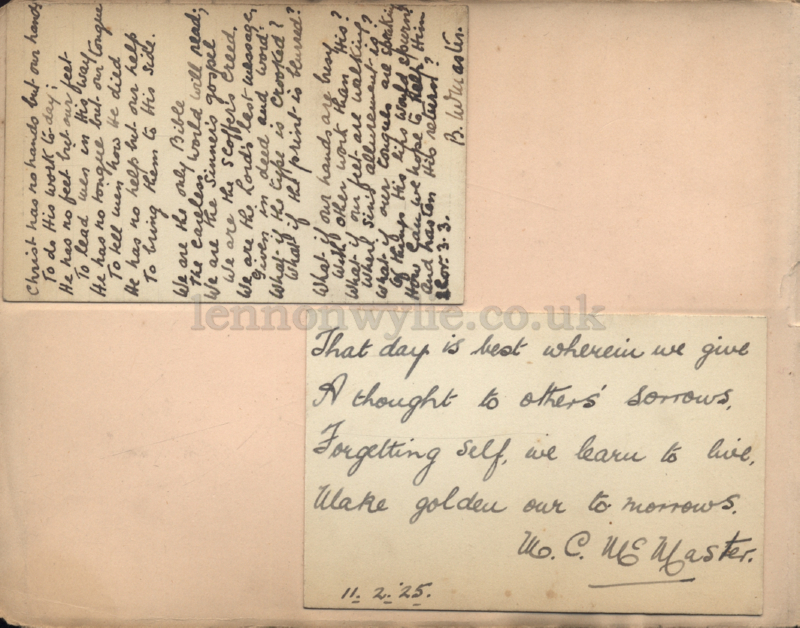 Christ has no hands but our hands
To do His work to-day;
He has no feet but our feet
To lead men in His way
He has no tongue but our tongue
To tell men how He died
He has no help but our help
To bring them to His side.
We are the only Bible
The careless world will read;
We are the Sinner's gospel
We are the scoffer's creed.
We are the Lord's last message,
Given in deed and word.
What if the type is crooked?
What if the print is blurred?
What if our hands are busy
With other work than His?
What if our feet are walking
Where Sin's allurement is?
What if our tongues are speaking
Of things His lips would spurn?
How can we hope to help Him
And hasten His return?
2 Cor. 3. 3.
B. McMaster.
lennonwylie.co.uk
That day is best wherein we give
A thought to others' sorrows,
Forgetting self, we learn to live,
Make golden our to morrows.
M. C. McMaster.
11. 2. 25.